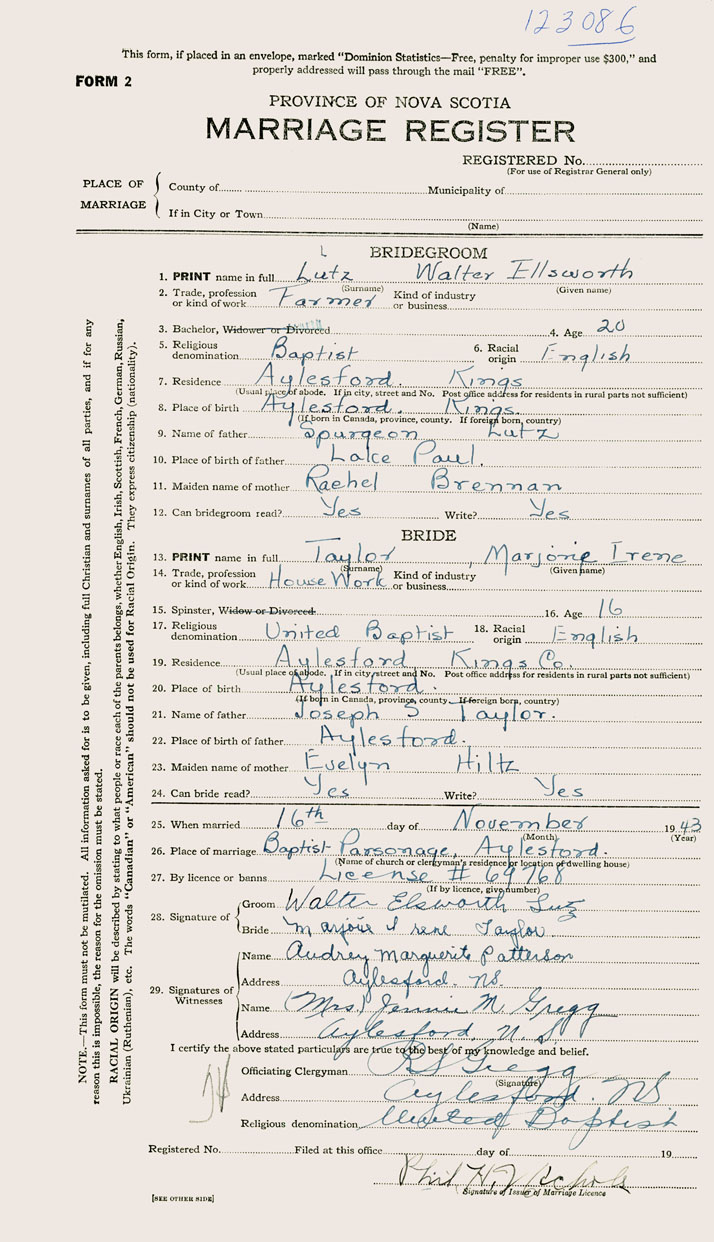 123086
This form, if placed in an envelope, marked "Dominion Statistics—Free, penalty for improper use $300," and
properly addressed will pass through the mail "FREE".
FORM 2
PROVINCE OF NOVA SCOTIA
MARRIAGE REGISTER
REGISTERED No.
(For use of Registrar General only)
PLACE OF MARRIAGE
County of Municipality of
If in City or Town
(Name)
BRIDEGROOM
1. PRINT name in full Lutz Walter Ellsworth
(Surname) (Given name)
2. Trade, profession or kind of work Farmer Kind of industry or business
3. Bachelor, Widower or Divorced 4. Age 20
5. Religious denomination Baptist 6. Racial origin English
7. Residence Aylesford. Kings
(Usual place of abode. If in city, street and No. Post office address for residents in rural parts not sufficient)
8. Place of birth Aylesford. Kings.
(If born in Canada, province, county. If foreign born, country)
9. Name of father Spurgeon Lutz
10. Place of birth of father Lake Paul.
11. Maiden name of mother Rachel Brennan
12. Can bridegroom read? Yes Write? Yes
BRIDE
13. PRINT name in full Taylor, Marjorie Irene
(Surname) (Given name)
14. Trade, profession or kind of work House Work Kind of industry or business
15. Spinster, Widow or Divorced 16. Age 16
17. Religious denomination United Baptist 18. Racial origin English
19. Residence Aylesford Kings Co.
(Usual place of abode. If in city street and No. Post office address for residents in rural parts not sufficient)
20. Place of birth Aylesford.
(If born in Canada, province, county. If foreign born, country)
21. Name of father Joseph S Taylor.
22. Place of birth of father Aylesford.
23. Maiden name of mother Evelyn Hiltz
24. Can bride read? Yes Write? Yes
25. When married 16th day of November 1943
(Month) (Year)
26. Place of marriage Baptist Parsonage, Aylesford.
(Name of church or clergyman's residence or location of dwelling house)
27. By licence or banns License # 69768
(If by licence, give number)
28. Signature of
Groom Walter Elsworth Lutz
Bride Marjorie Irene Taylor
29. Signatures of Witnesses
Name Audrey Marguerite Patterson
Address Aylesford. NS.
Name (Mrs) Jennie M. Gregg
Address Aylesford, N.S
I certify the above stated particulars are true to the best of my knowledge and belief.
Officiating Clergyman Gregg
(Signature)
Address Aylesford. NS
Religious denomination United Baptist
Registered No. Filed at this office day of 19
Phil H. Nichols
Signature of Issuer of Marriage Licence
[SEE OTHER SIDE]
NOTE.—This form must not be mutilated. All information asked for is to be given, including full Christian and surnames of all parties, and if for any
reason this is impossible, the reason for the omission must be stated.
RACIAL ORIGIN will be described by stating to what people or race each of the parents belongs, whether English, Irish, Scottish, French, German, Russian,
Ukrainian (Ruthenian), etc. The words "Canadian" or "American" should not be used for Racial Origin. They express citizenship (nationality).